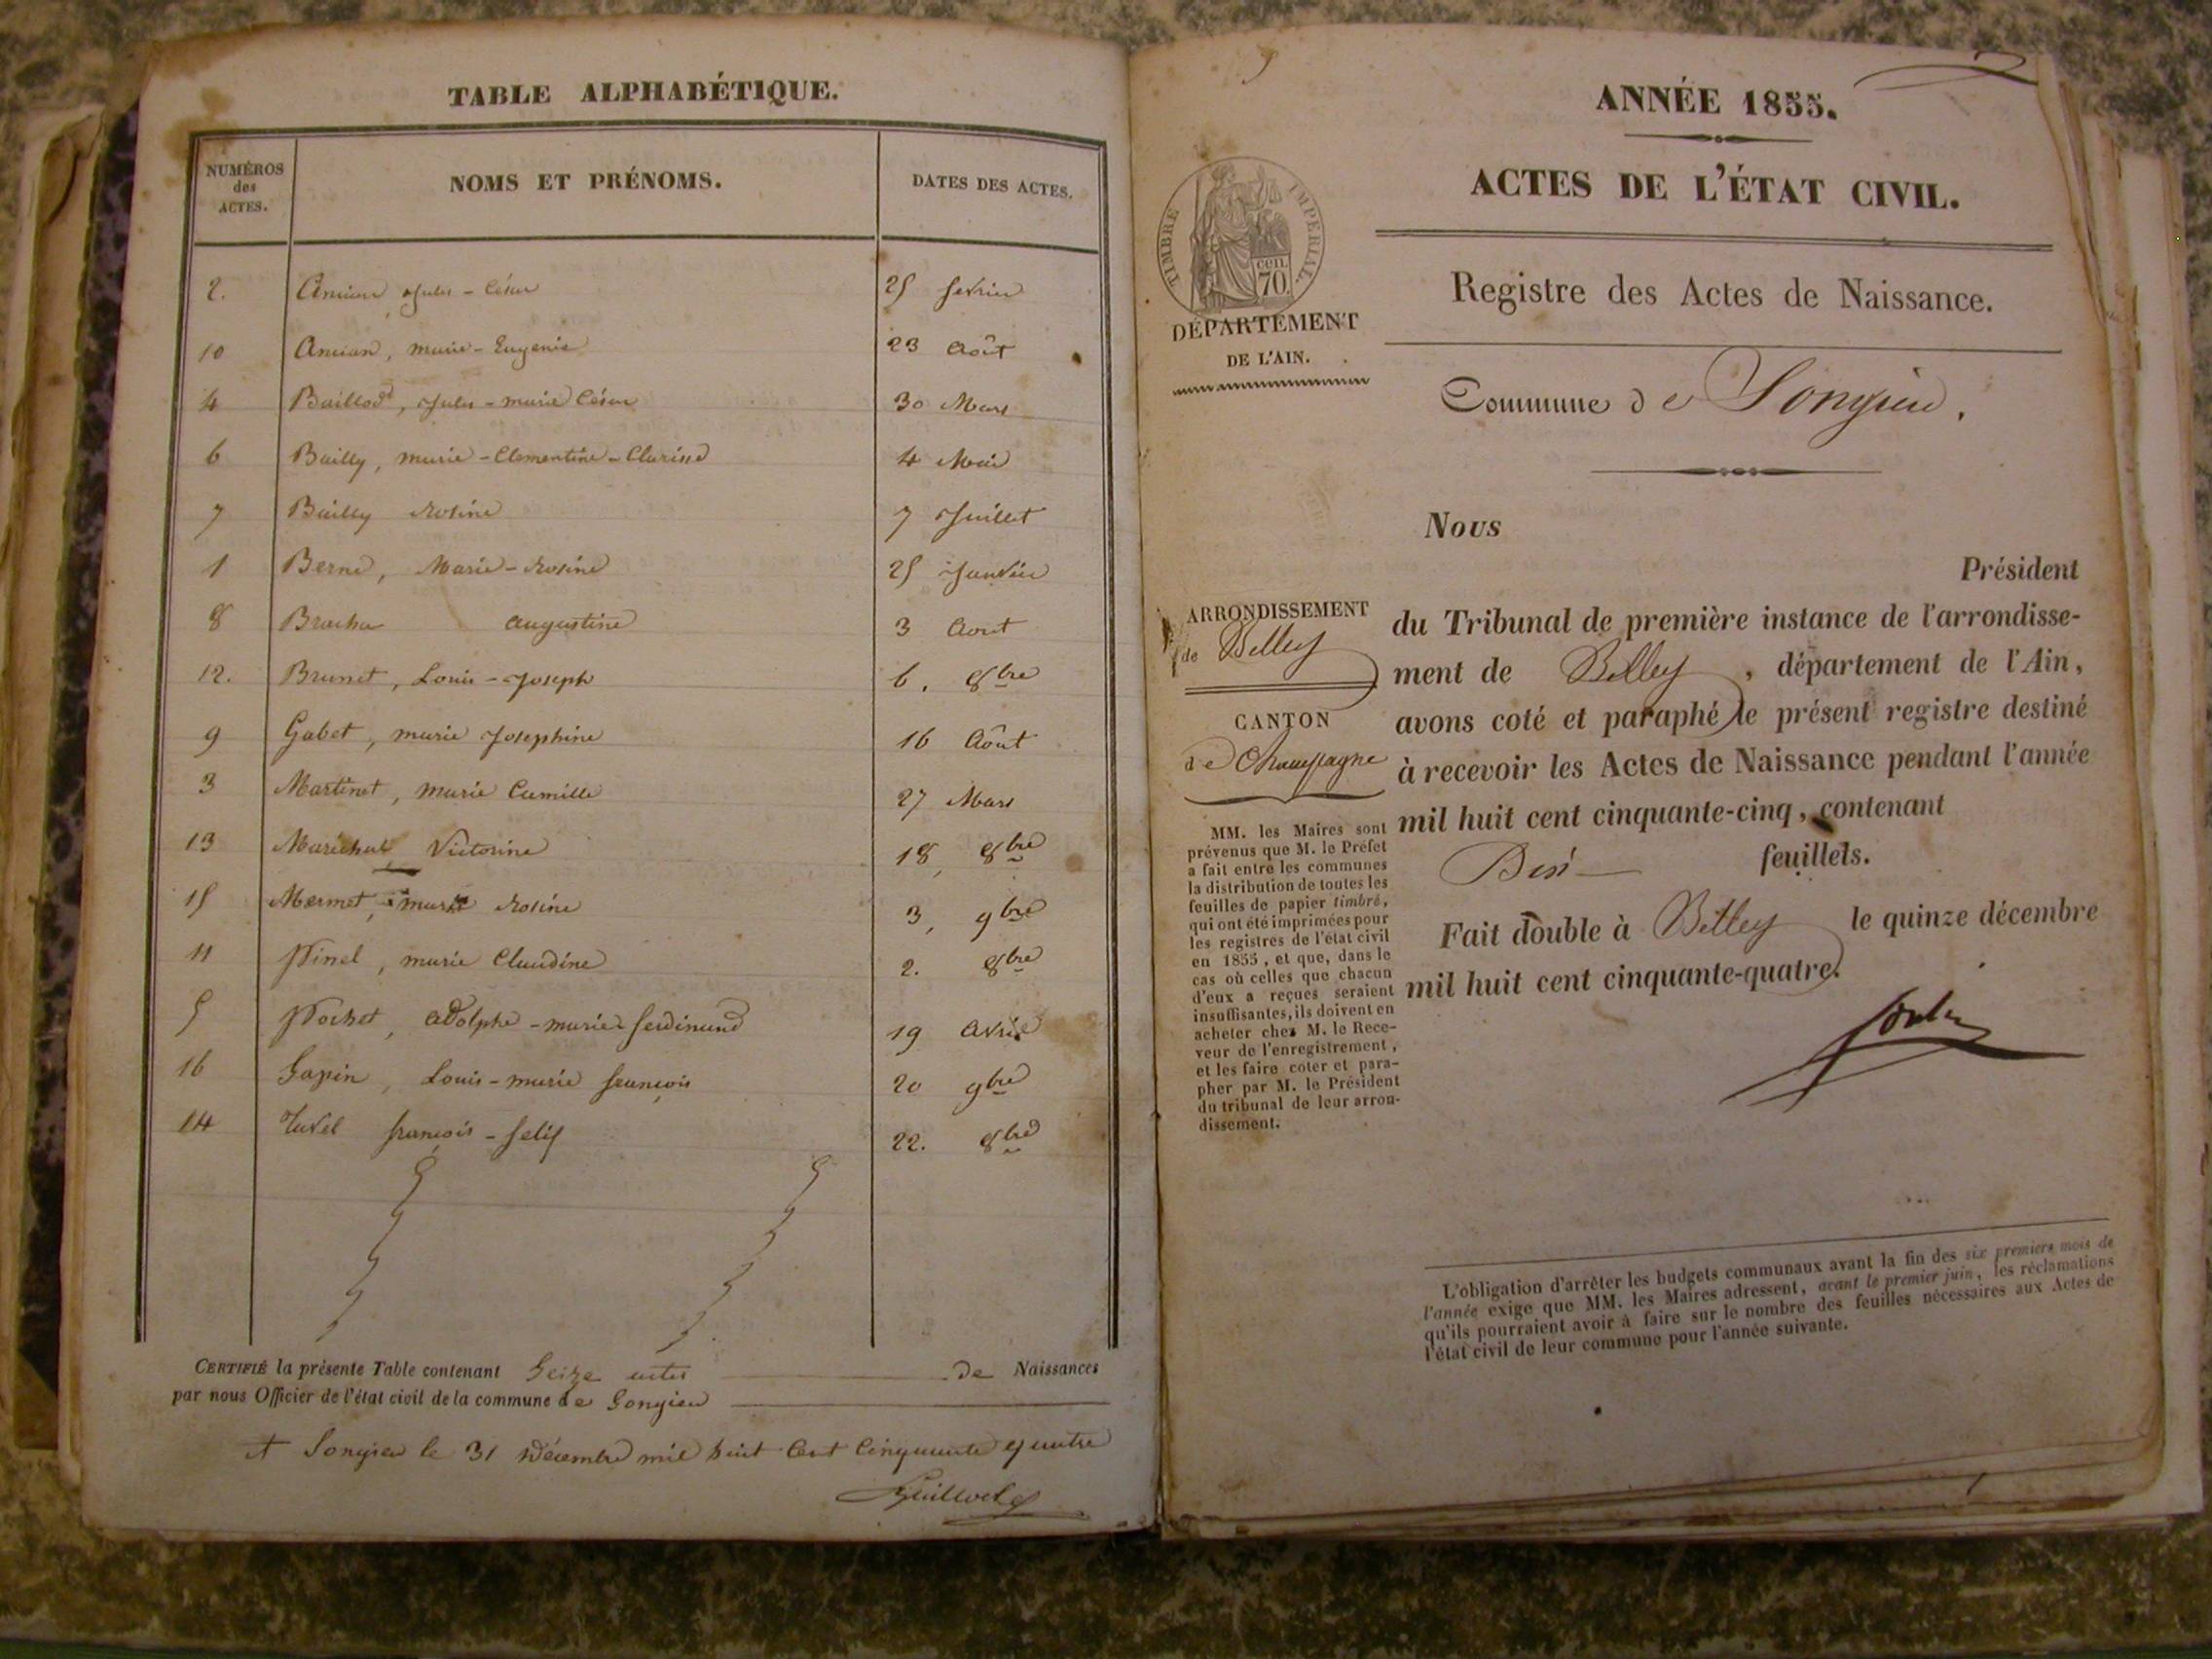 TABLE ALPHABÉTIQUE.
NUMÉROS des ACTES.
NOMS ET PRÉNOMS.
DATES DES ACTES.
2. Ancian Jules - César 25 février
10 Ancian, marie - Eugenie 23 Août
4 Baillod, Jules - marie César 30 Mars
6 Bailly, marie - Clementine - Clarisse 4 Mai
7 Bailly Rosine 7 Juillet
1 Berne, Marie - Rosine 25 Janvier
8 Augustine 3 Aout
12. Brunet, Louis - Joseph 6, 8bre
9 Gabet, marie Josephine 16 Août
3 Martinet, marie Camille 27 Mars
13 Maréchal Victorine 18, 8bre
15 Mermet, marie Rosine 3, 9bre
11 Pinel, marie Claudine 2. 8bre
5 Pochet, Adolphe - marie - ferdinand 19 Avril
16 Sapin, Louis - marie françois 20 9bre
14 françois - felix 22. 8bre
CERTIFIÉ la présente Table contenant Seize actes de Naissances
par nous Officier de l'état civil de la commune de Songieu
A Songieu le 31 Décembre mil huit Cent Cinquante quatre
ANNÉE 1855.
ACTES DE L'ÉTAT CIVIL.
TIMBRE IMPÉRIAL.
CENT. 70.
DÉPARTEMENT
DE L'AIN.
Registre des Actes de Naissance.
Commune de Songieu.
Nous
Président
du Tribunal de première instance de l'arrondisse-
ment de Belley, département de l'Ain,
avons coté et paraphé le présent registre destiné
à recevoir les Actes de Naissance pendant l'année
mil huit cent cinquante-cinq, contenant
feuillets.
Fait double à Belley le quinze décembre
mil huit cent cinquante-quatre.
ARRONDISSEMENT
de Belley
CANTON
de Champagne
MM. les Maires sont
prévenus que M. le Préfet
a fait entre les communes
la distribution de toutes les
feuilles de papier timbré,
qui ont été imprimées pour
les registres de l'état civil
en 1855, et que, dans le
cas où celles que chacun
d'eux a reçues seraient
insuffisantes, ils doivent en
acheter chez M. le Rece-
veur de l'enregistrement,
et les faire coter et para-
pher par M. le Président
du tribunal de leur arron-
dissement.
L'obligation d'arrêter les budgets communaux avant la fin des six premiers mois de
l'année exige que MM. les Maires adressent, avant le premier juin, les réclamations
qu'ils pourraient avoir à faire sur le nombre des feuilles nécessaires aux Actes de
l'état civil de leur commune pour l'année suivante.